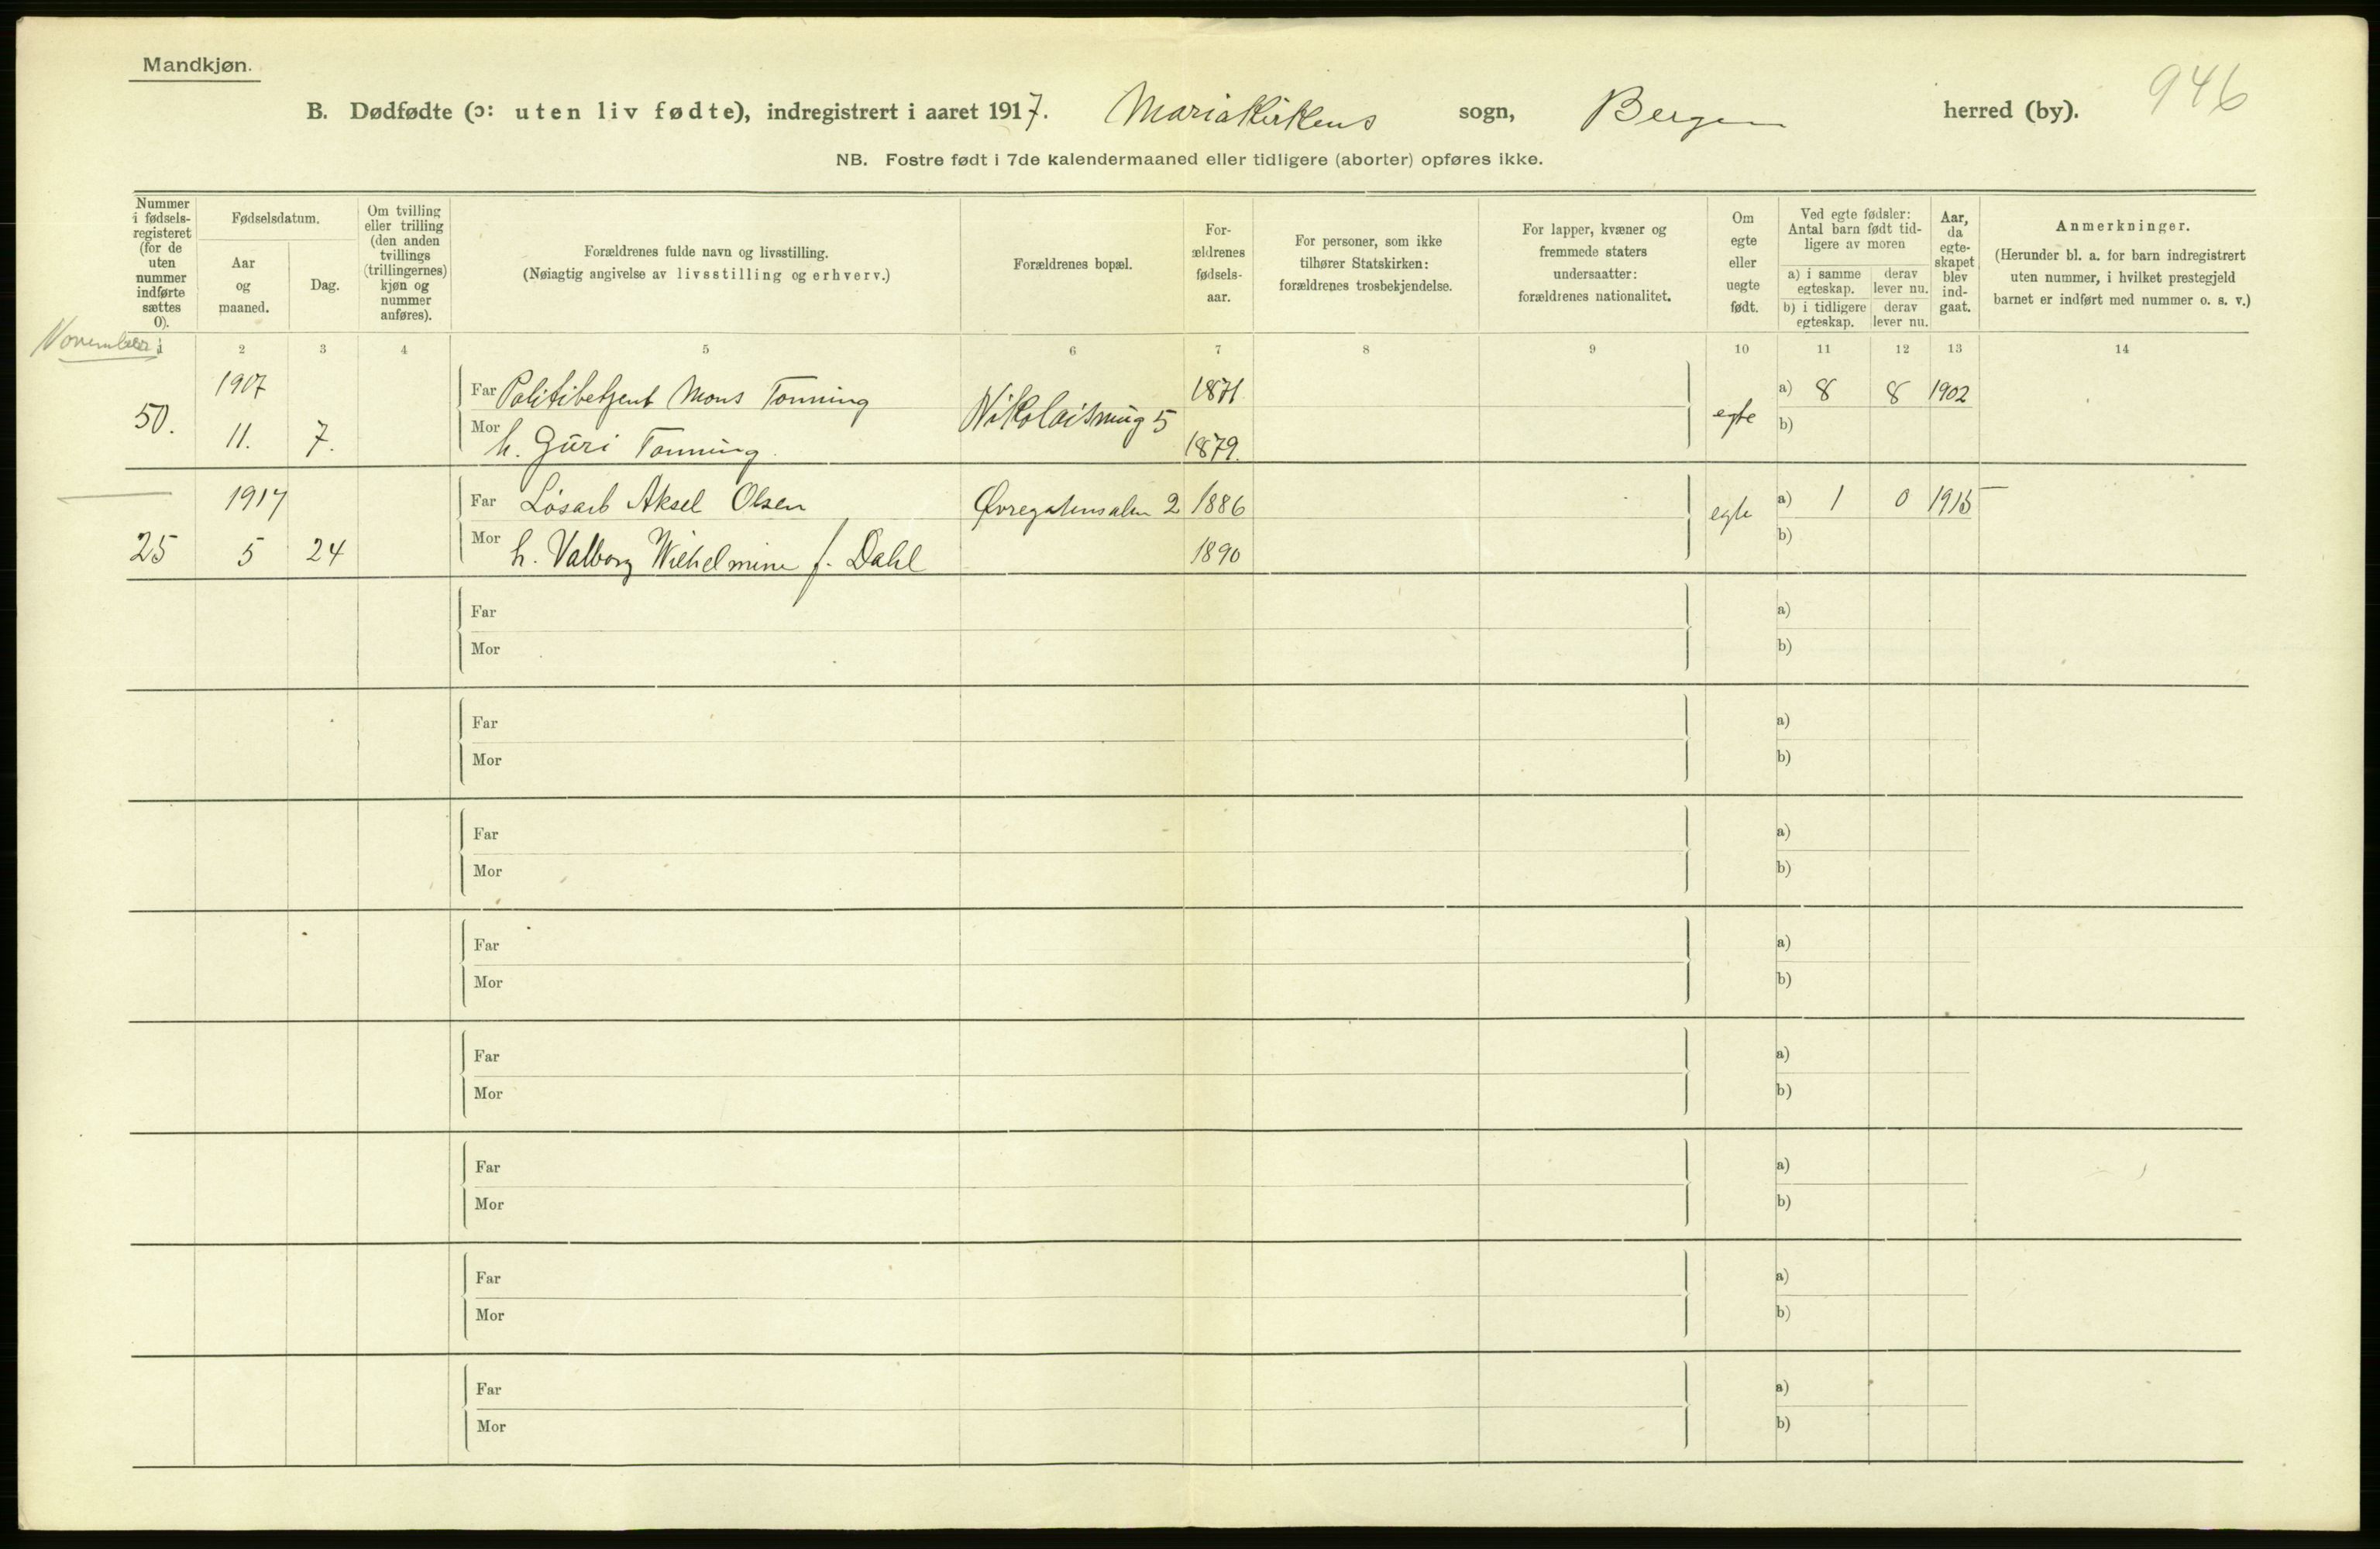 Mandkjøn.
946
B. Dødfødte (ɔ: uten liv fødte), indregistrert i aaret 1917. Mariakirkens sogn, Bergen herred (by).
NB. Fostre født i 7de kalendermaaned eller tidligere (aborter) opføres ikke.
Nummer i fødsels-registeret (for de uten nummer indførte sættes 0).
Fødselsdatum.
Aar og maaned.
Dag.
Om tvilling eller trilling (den anden tvillings (trillingernes) kjøn og nummer anføres).
Forældrenes fulde navn og livsstilling.
(Nøiagtig angivelse av livsstilling og erhverv.)
Forældrenes bopæl.
For-ældrenes fødsels-aar.
For personer, som ikke tilhører Statskirken: forældrenes trosbekjendelse.
For lapper, kvæner og fremmede staters undersaatter: forældrenes nationalitet.
Om egte eller uegte født.
Ved egte fødsler: Antal barn født tid-ligere av moren
a) i samme egteskap.
derav lever nu.
b) i tidligere egteskap.
derav lever nu.
Aar, da egte-skapet blev ind-gaat.
Anmerkninger.
(Herunder bl. a. for barn indregistrert uten nummer, i hvilket prestegjeld barnet er indført med nummer o. s. v.)
November
1 2 3 4 5 6 7 8 9 10 11 12 13 14
1907 Far Politibetjent Mons Tonning 1871 a) 8 8 1902
50. 11. 7. Mor h. Guri Tonning Nikolaismug 5 1879. egte b)
1917 Far Løsarb Aksel Olsen Øvregatensalm 2 1886 egte a) 1 0 1915
25 5 24 Mor h. Valborg Wilhelmine f. Dahl 1890 b)
Far a)
Mor b)
Far a)
Mor b)
Far a)
Mor b)
Far a)
Mor b)
Far a)
Mor b)
Far a)
Mor b)
Far a)
Mor b)
Far a)
Mor b)